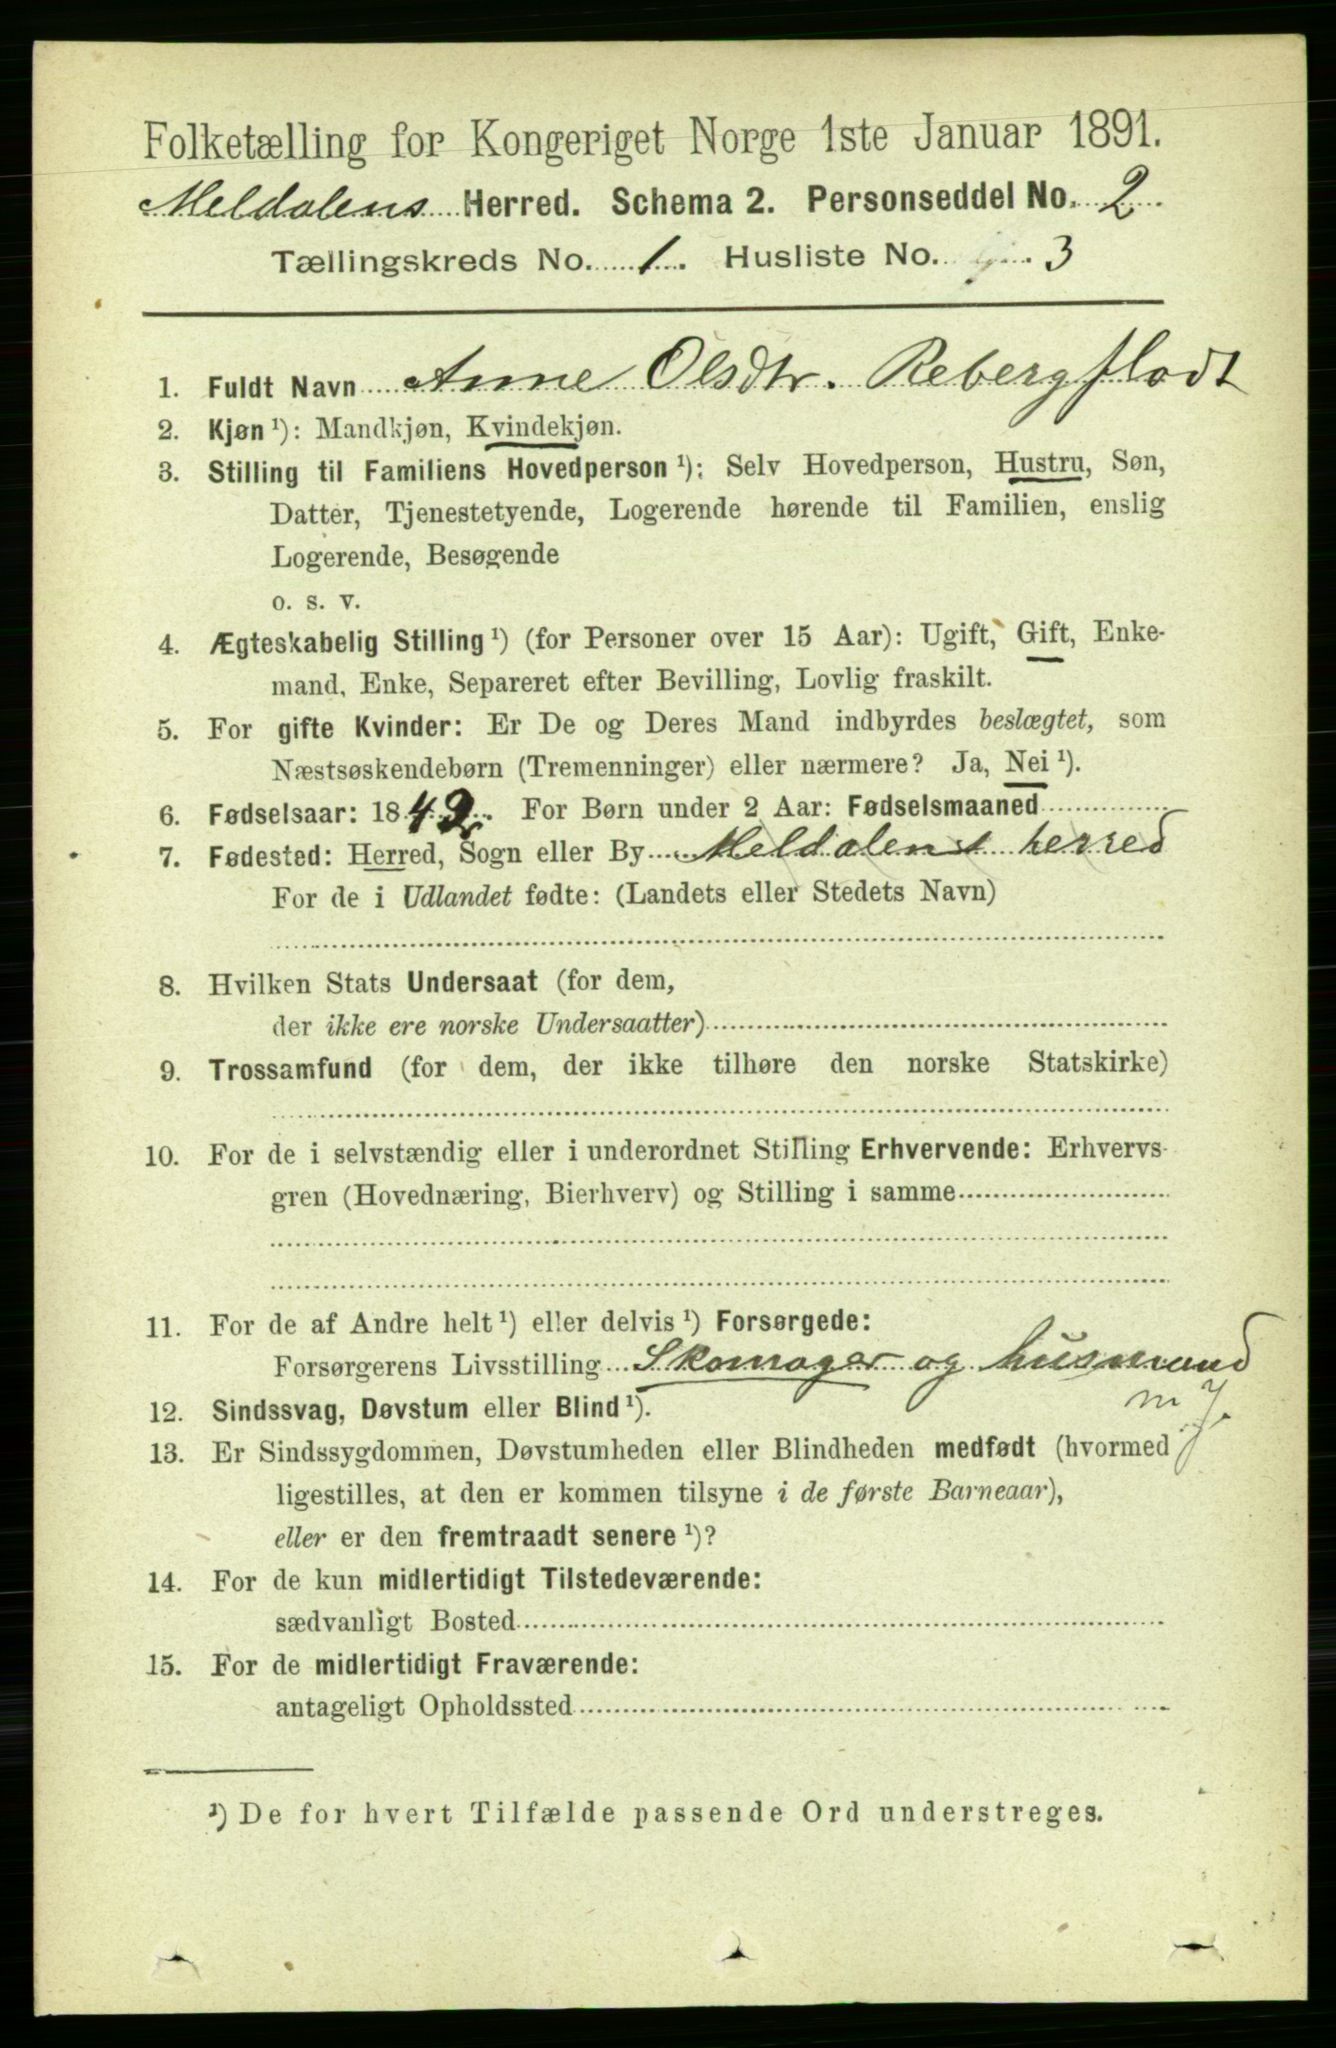 Folketælling for Kongeriget Norge 1ste Januar 1891.
Meldalens Herred. Schema 2. Personseddel No. 2
Tællingskreds No. 1. Husliste No. 3
1. Fuldt Navn Anne Olsdtr. Rebergflodt
2. Kjøn ¹): Mandkjøn, Kvindekjøn.
3. Stilling til Familiens Hovedperson ¹): Selv Hovedperson, Hustru, Søn,
Datter, Tjenestetyende, Logerende hørende til Familien, enslig
Logerende, Besøgende
o. s. v.
4. Ægteskabelig Stilling ¹) (for Personer over 15 Aar): Ugift, Gift, Enke-
mand, Enke, Separeret efter Bevilling, Lovlig fraskilt.
5. For gifte Kvinder: Er De og Deres Mand indbyrdes beslægtet, som
Næstsøskendebørn (Tremenninger) eller nærmere? Ja, Nei ¹).
6. Fødselsaar: 1842. For Børn under 2 Aar: Fødselsmaaned
7. Fødested: Herred, Sogn eller By Meldalens herred
For de i Udlandet fødte: (Landets eller Stedets Navn)
8. Hvilken Stats Undersaat (for dem,
der ikke ere norske Undersaatter)
9. Trossamfund (for dem, der ikke tilhøre den norske Statskirke)
10. For de i selvstændig eller i underordnet Stilling Erhvervende: Erhvervs-
gren (Hovednæring, Bierhverv) og Stilling i samme
11. For de af Andre helt ¹) eller delvis ¹) Forsørgede:
Forsørgerens Livsstilling Skomager og husmand
m J.
12. Sindssvag, Døvstum eller Blind ¹).
13. Er Sindssygdommen, Døvstumheden eller Blindheden medfødt (hvormed
ligestilles, at den er kommen tilsyne i de første Barneaar),
eller er den fremtraadt senere ¹)?
14. For de kun midlertidigt Tilstedeværende:
sædvanligt Bosted
15. For de midlertidigt Fraværende:
antageligt Opholdssted
¹) De for hvert Tilfælde passende Ord understreges.